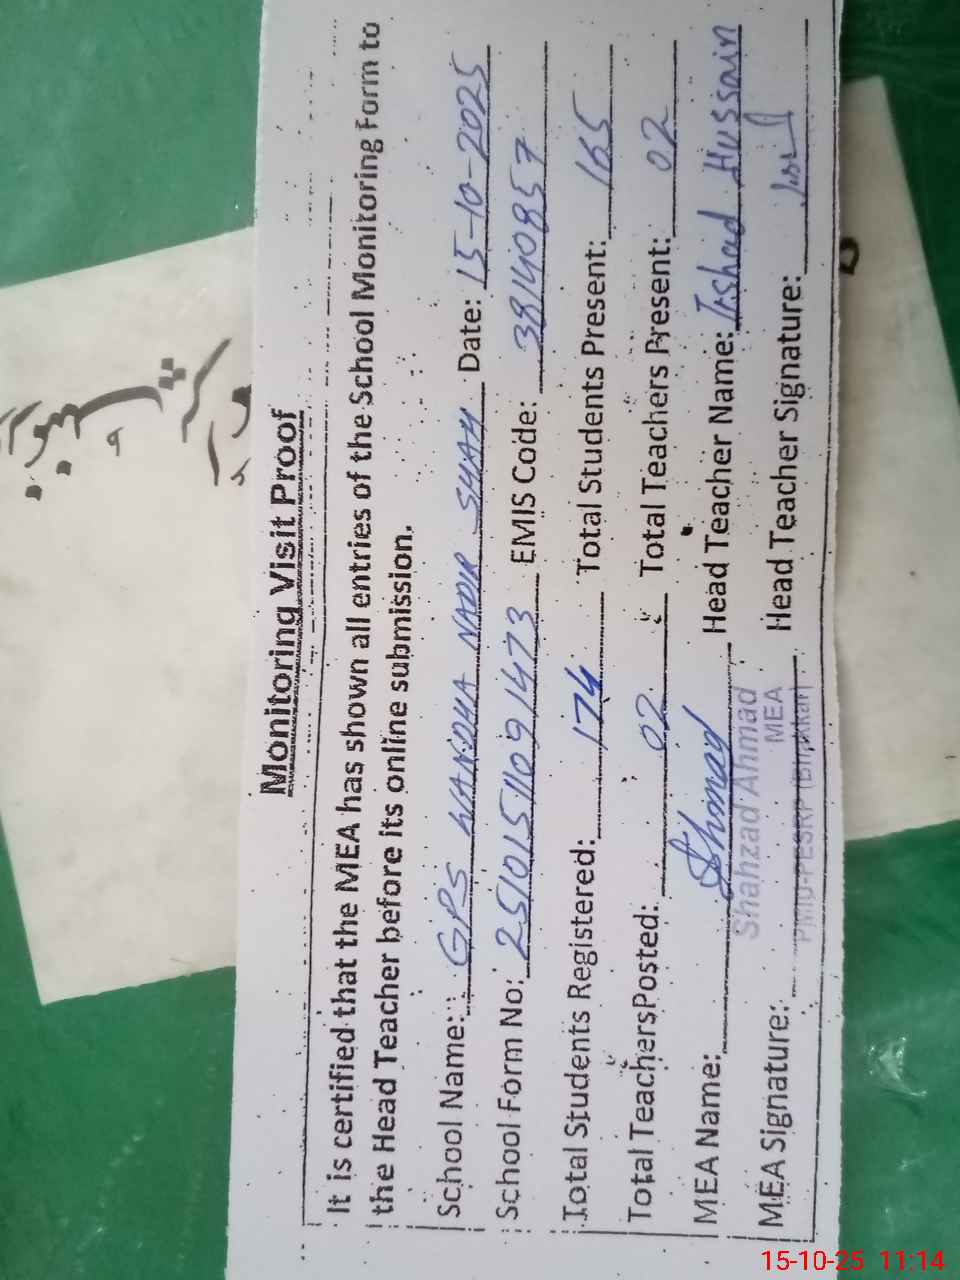 Monitoring Visit Proof
It is certified that the MEA has shown all entries of the School Monitoring Form to
the Head Teacher before its online submission.
School Name: GPS WANDHA NADIR SHAH Date: 15-10-2025
School Form No: 2510151109 1473 EMIS Code: 38140857
Total Students Registered: 174 Total Students Present: 165
Total TeachersPosted: 02 Total Teachers Present: 02
MEA Name: Head Teacher Name: Irshad Hussain
Shahzad Ahmad
MEA
MEA Signature: PMIU-PESRP (Bhakkar) Head Teacher Signature:
15-10-25 11:14